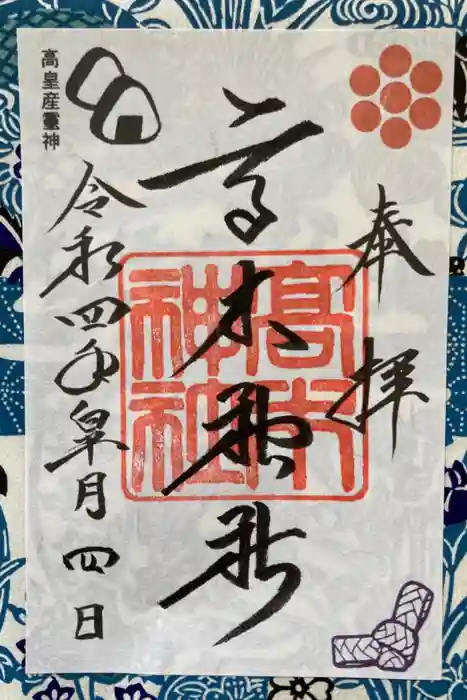 奉拝
高木神社
高木神社
令和四年皐月四日
高皇産霊神